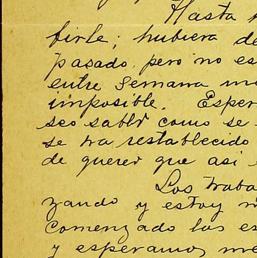 Hasta
birle; hubiera de
pasado, pero no es
entre semana m
imposible. Esper
seo sabbr como se
se ha restablecido
de querer que asi
Los traba
zando y estoy m
comenzado las es
y esperamos me